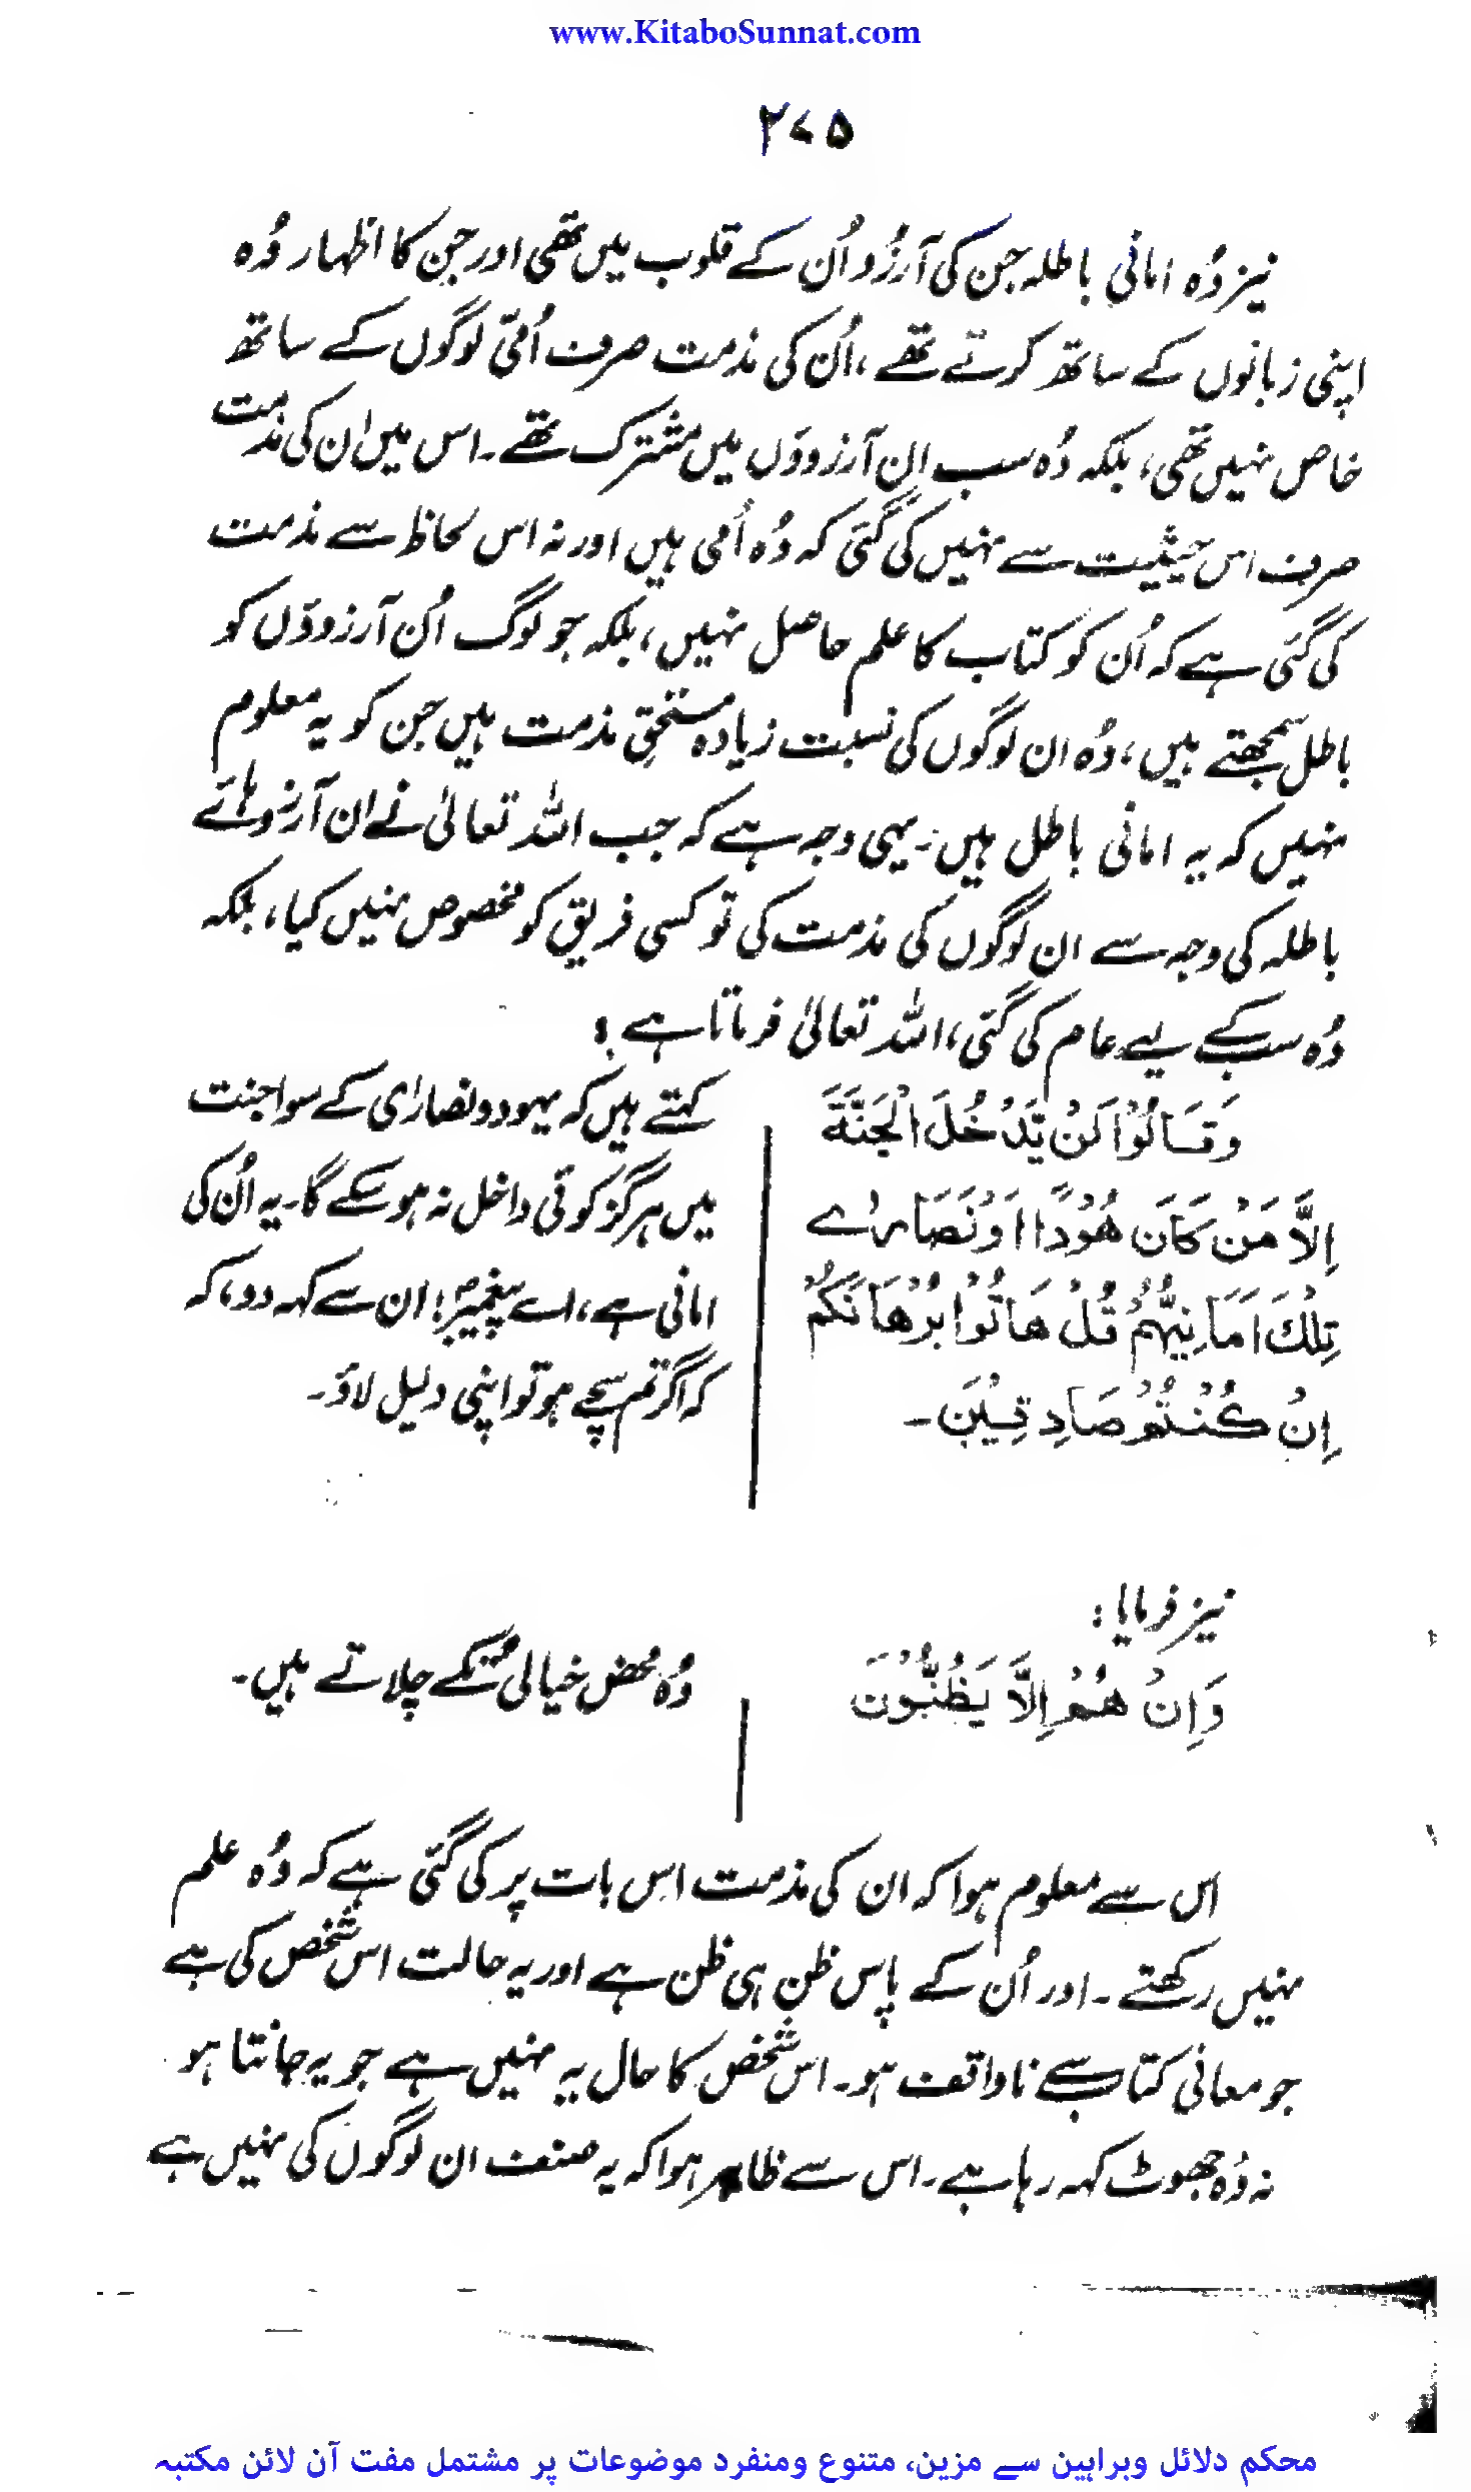 www.KitaboSunnat.com
۲۷۵
نیز وُہ امانی باطلہ جن کی آرزُو اُن کے قلوب میں تھی اور جن کا اظہار وُہ
اپنی زبانوں کے ساتھ کرتے تھے، اُن کی مذمت صرف اُمّی لوگوں کے ساتھ
خاص نہیں تھی، بلکہ وُہ سب ان آرزووَں میں مشترک تھے۔ اس میں ان کی مذمت
صرف اس حیثیت سے نہیں کی گئی کہ وُہ اُمی ہیں اور نہ اس لحاظ سے مذمت
کی گئی ہے کہ اُن کو کتاب کا علم حاصل نہیں، بلکہ جو لوگ اُن آرزووَں کو
باطل سمجھتے ہیں، وُہ ان لوگوں کی نسبت زیادہ مستحقِ مذمت ہیں جن کو یہ معلوم
نہیں کہ یہ امانی باطل ہیں۔ یہی وجہ ہے کہ جب اللہ تعالیٰ نے ان آرزو ہائے
باطلہ کی وجہ سے ان لوگوں کی مذمت کی تو کسی فریق کو مخصوص نہیں کیا، بلکہ
وُہ سب کے لیے عام کی گئی، اللہ تعالیٰ فرماتا ہے:
وَقَالُوْا لَنْ یَّدْخُلَ الْجَنَّةَ
اِلَّا مَنْ کَانَ هُوْدًا اَوْ نَصَارٰے
تِلْكَ اَمَانِیُّهُمْ قُلْ هَاتُوْا بُرْهَانَكُمْ
اِنْ كُنْتُمْ صَادِقِیْنَ۔
کہتے ہیں کہ یہود و نصارٰی کے سوا جنت
میں ہرگز کوئی داخل نہ ہو سکے گا۔ یہ اُن کی
امانی ہے، اے پیغمبرؐ! ان سے کہہ دو، کہ
کہ اگر تم سچے ہو تو اپنی دلیل لاؤ۔
نیز فرمایا:
وَاِنْ هُمْ اِلَّا یَظُنُّوْنَ
وُہ محض خیالی تُکے چلاتے ہیں۔
اس سے معلوم ہوا کہ ان کی مذمت اس بات پر کی گئی ہے کہ وُہ علم
نہیں رکھتے۔ اور اُن کے پاس ظن ہی ظن ہے اور یہ حالت اس شخص کی ہے
جو معانی کتاب سے ناواقف ہو۔ اس شخص کا حال یہ نہیں ہے جو یہ جانتا ہو
نہ وُہ جھوٹ کہہ رہا ہے۔ اس سے ظاہر ہوا کہ یہ صنعت ان لوگوں کی نہیں ہے
محکم دلائل وبراہین سے مزین، متنوع ومنفرد موضوعات پر مشتمل مفت آن لائن مکتبہ